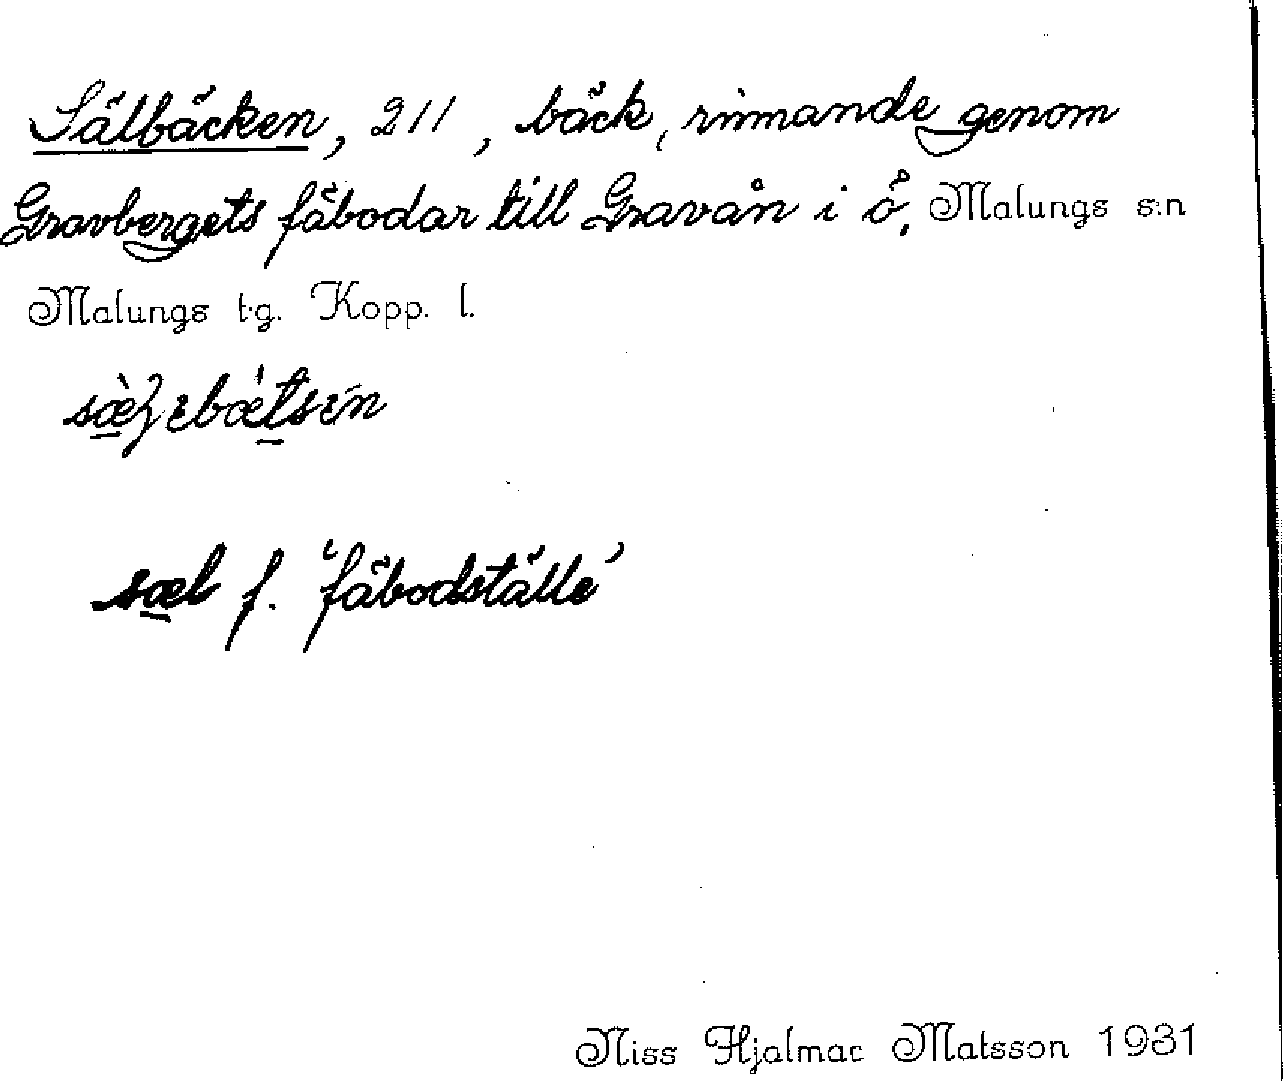 Sälbäcken, 211, bäck, rinnande genom
Gravbergets fäbodar till Gravån i ö. Malungs s:n
Malungs t.g. Kopp. l.
sæl f. 'fäbodställe'
Niss Hjalmar Matsson 1931